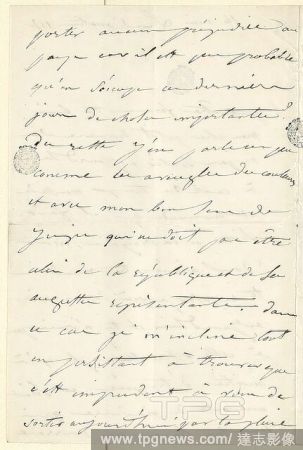 porter aucun préjudice au
pays car il est peu probable
qu'on s'occupe
jours de choses importantes?
Du reste j'en parle un peu
comme les aveugles des couleurs
et avec mon bon sens de
qui ne doit pas être
celui de la république et de ses
représentants. Dans
ce cas je m'incline tout
en persistant à trouver que
c'est imprudent à vous de
sortir aujourd'hui par la pluie
TPG
www.tpgnews.com/達志影像